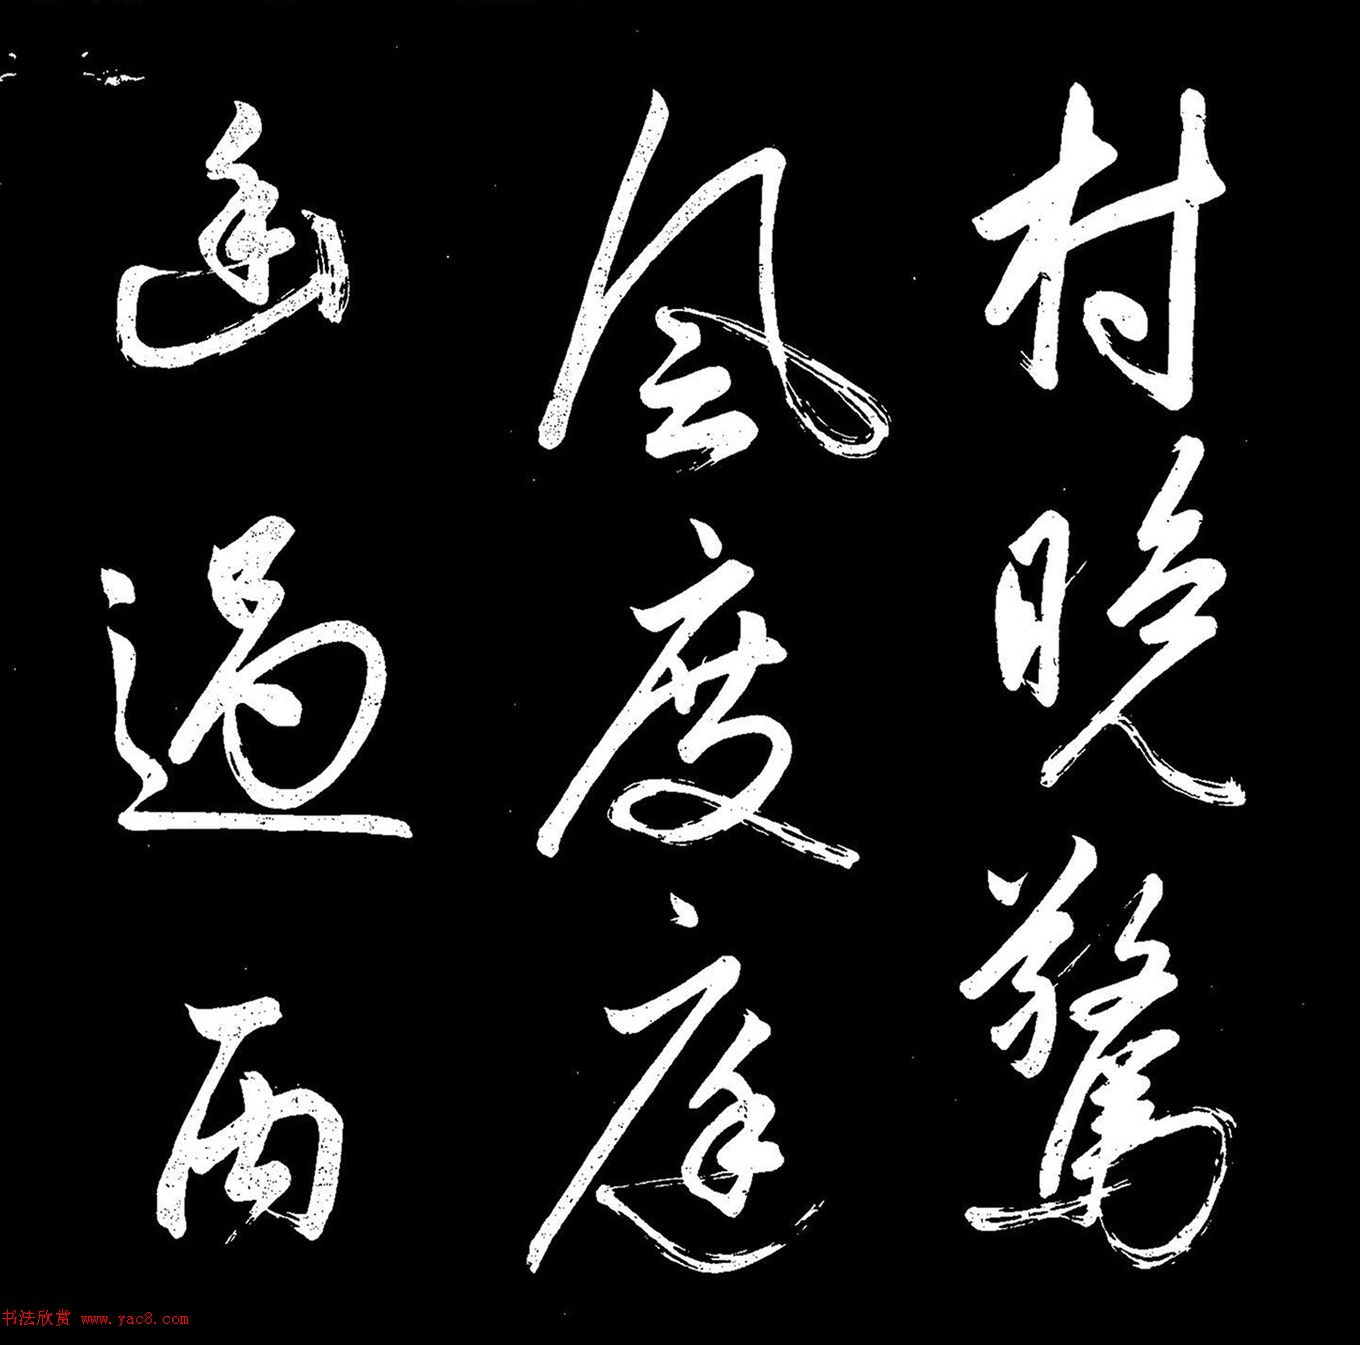 村晚驚
風度庭
幽過雨
书法欣赏 www.yac8.com